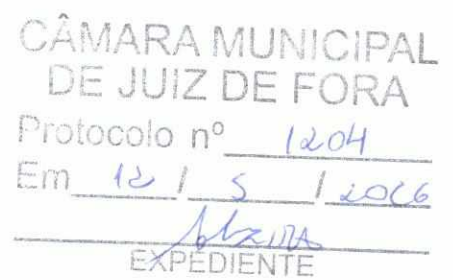 CÂMARA MUNICIPAL
DE JUIZ DE FORA
Protocolo nº 1204
Em 12 / 5 / 2026
EXPEDIENTE